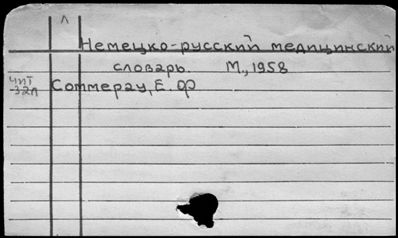 Немецко-русский медицинский
словарь. М., 1958
чит
-32л
Соммерау, Е. Ф